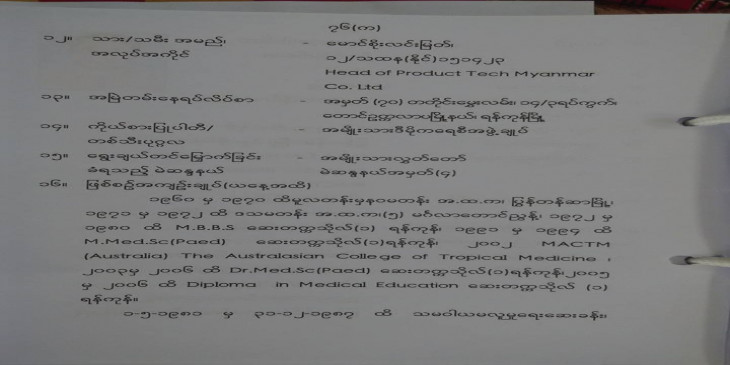 ၇၆(က)
၁၂။ သား/သမီး အမည်၊ - မောင်စိုးလင်းမြတ်၊
အလုပ်အကိုင် ၁၂/သထန(နိုင်)၁၅၁၄၂၃
Head of Product Tech Myanmar
Co. Ltd
၁၃။ အမြဲတမ်းနေရပ်လိပ်စာ - အမှတ် (၇၀) တတိုင်းမွှေးလမ်း၊ ၁၄/၃ရပ်ကွက်၊
တောင်ဥက္ကလာပမြို့နယ်၊ ရန်ကုန်မြို့
၁၄။ ကိုယ်စားပြုပါတီ/ - အမျိုးသားဒီမိုကရေစီအဖွဲ့ချုပ်
တစ်သီးပုဂ္ဂလ
၁၅။ ရွေးချယ်တင်မြှောက်ခြင်း - အမျိုးသားလွှတ်တော်
ခံရသည့် မဲဆန္ဒနယ် မဲဆန္ဒနယ်အမှတ်(၄)
၁၆။ ဖြစ်စဉ်အကျဉ်းချုပ်(ယနေ့အထိ)
၁၉၆၀ မှ ၁၉၇၀ ထိမူလတန်းမှနဝမတန်း အ.ထ.က၊ ပြွန်တန်ဆာမြို့၊
၁၉၇၁ မှ ၁၉၇၂ ထိ ဒသမတန်း အ.ထ.က၊(၅) မင်္ဂလာတောင်ညွန့်၊ ၁၉၇၂ မှ
၁၉၈၀ ထိ M.B.B.S ဆေးတက္ကသိုလ်(၁) ရန်ကုန်၊ ၁၉၉၁ မှ ၁၉၉၄ ထိ
M.Med.Sc(Paed) ဆေးတက္ကသိုလ်(၁)ရန်ကုန်၊ ၂၀၀၂ MACTM
(Australia) The Australasian College of Tropical Medicine ၊
၂၀၀၃မှ ၂၀၀၆ ထိ Dr.Med.Sc(Paed) ဆေးတက္ကသိုလ်(၁)ရန်ကုန်၊၂၀၀၅
မှ ၂၀၀၆ ထိ Diploma in Medical Education ဆေးတက္ကသိုလ် (၁)
ရန်ကုန်။
၁-၅-၁၉၈၁ မှ ၃၁-၁၂-၁၉၈၇ ထိ သမဝါယမလူမှုရေးဆေးခန်း၊